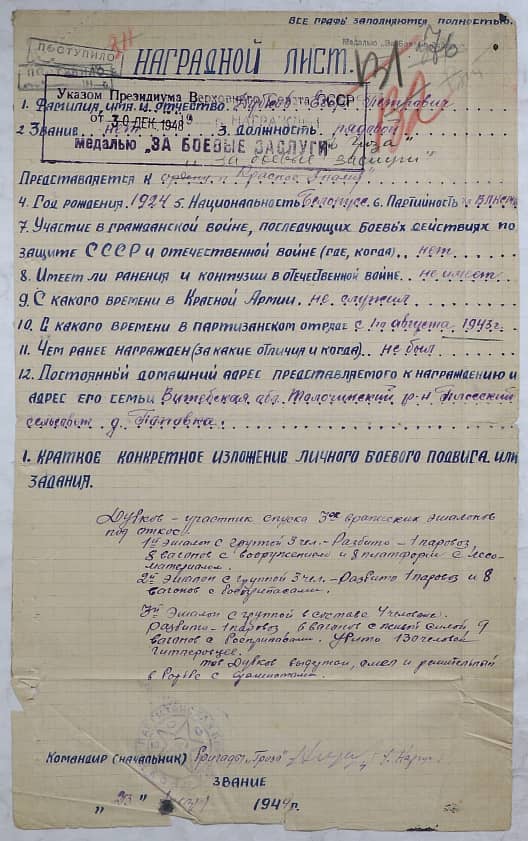 Все графы заполняются полностью.
ПОСТУПИЛО
Медалью „За Боевые
НАГРАДНОЙ ЛИСТ.
Указом Президиума Верховного Совета СССР
от 30 ДЕК 1948 г. НАГРАЖДЕН
медалью „ЗА БОЕВЫЕ ЗАСЛУГИ"
1. Фамилия, имя и отчество Дубков Петрович
2 Звание нет 3. Должность рядовой
„За боевые заслуги"
Представляется к ордену „Красное Знамя"
4. Год рождения. 1924 5. Национальность Белорус 6. Партийность
7. Участие в гражданской войне, последующих боевых действиях по
защите СССР и отечественной войне (где, когда).. нет
8. Имеет ли ранения и контузии в отечественной войне.. не имеет
9. С какого времени в Красной Армии. не служил
10. С какого времени в партизанском отряде с 1го августа 1943г.
11. Чем ранее награжден (за какие отличия и когда).. не был
12. Постоянный домашний адрес представляемого к награждению и
адрес его семьи Витебская обл. Толочинский р-н
сельсовет д.
1. Краткое конкретное изложение личного боевого подвига или
задания.
Дубков – участник спуска 3ох вражеских эшалонов
под откос.
1й эшалон с группой 3 чел. – Разбито – 1 паровоз
8 вагонов с вооружением и 8 платформ с лесо-
материалом.
2й эшалон с группой 3 чел. – Разбито 1 паровоз и 8
вагонов с боеприпасами.
3й эшалон с группой в составе 4 человека.
Разбито – 1 паровоз 6 вагонов с живой силой, 9
вагонов с боеприпасами. Убито 130 человек
гитлеровцев.
тов Дубков смел и решительный
в борьбе с
Командир (начальник) Бригады „Гроза"
Звание
„ 23 " 1944 г.